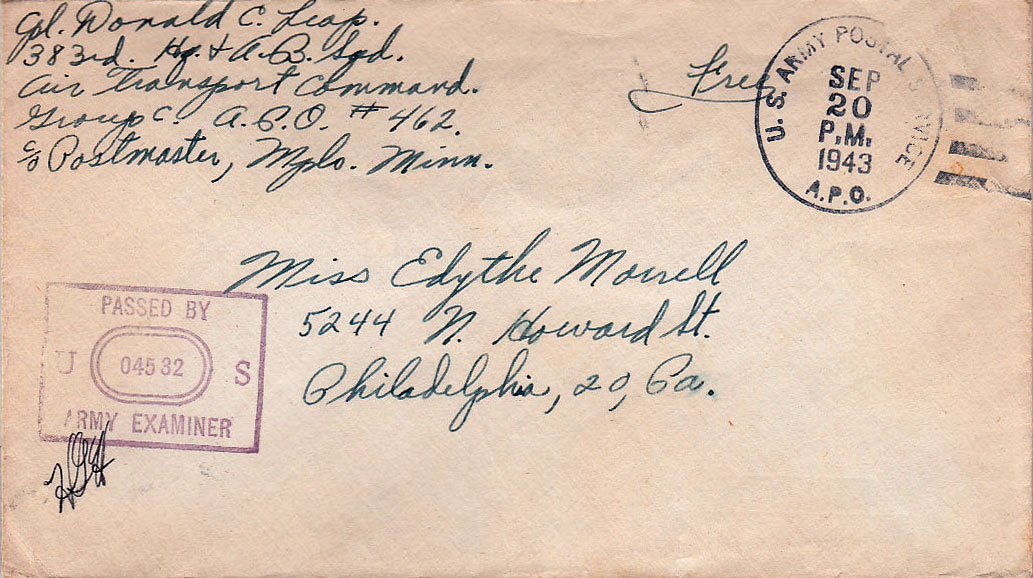 Cpl. Donald C. Leap.
383rd. Hq. & A.B. Sqd.
Air Transport Command.
Group C. A.P.O. # 462.
c/o Postmaster, Mplo. Minn.
Free
U. S. ARMY POSTAL SERVICE
SEP
20
P.M.
1943
A.P.O.
Miss Edythe Morrell
5244 N. Howard St.
Philadelphia, 20, Pa.
PASSED BY
U 04532 S
ARMY EXAMINER